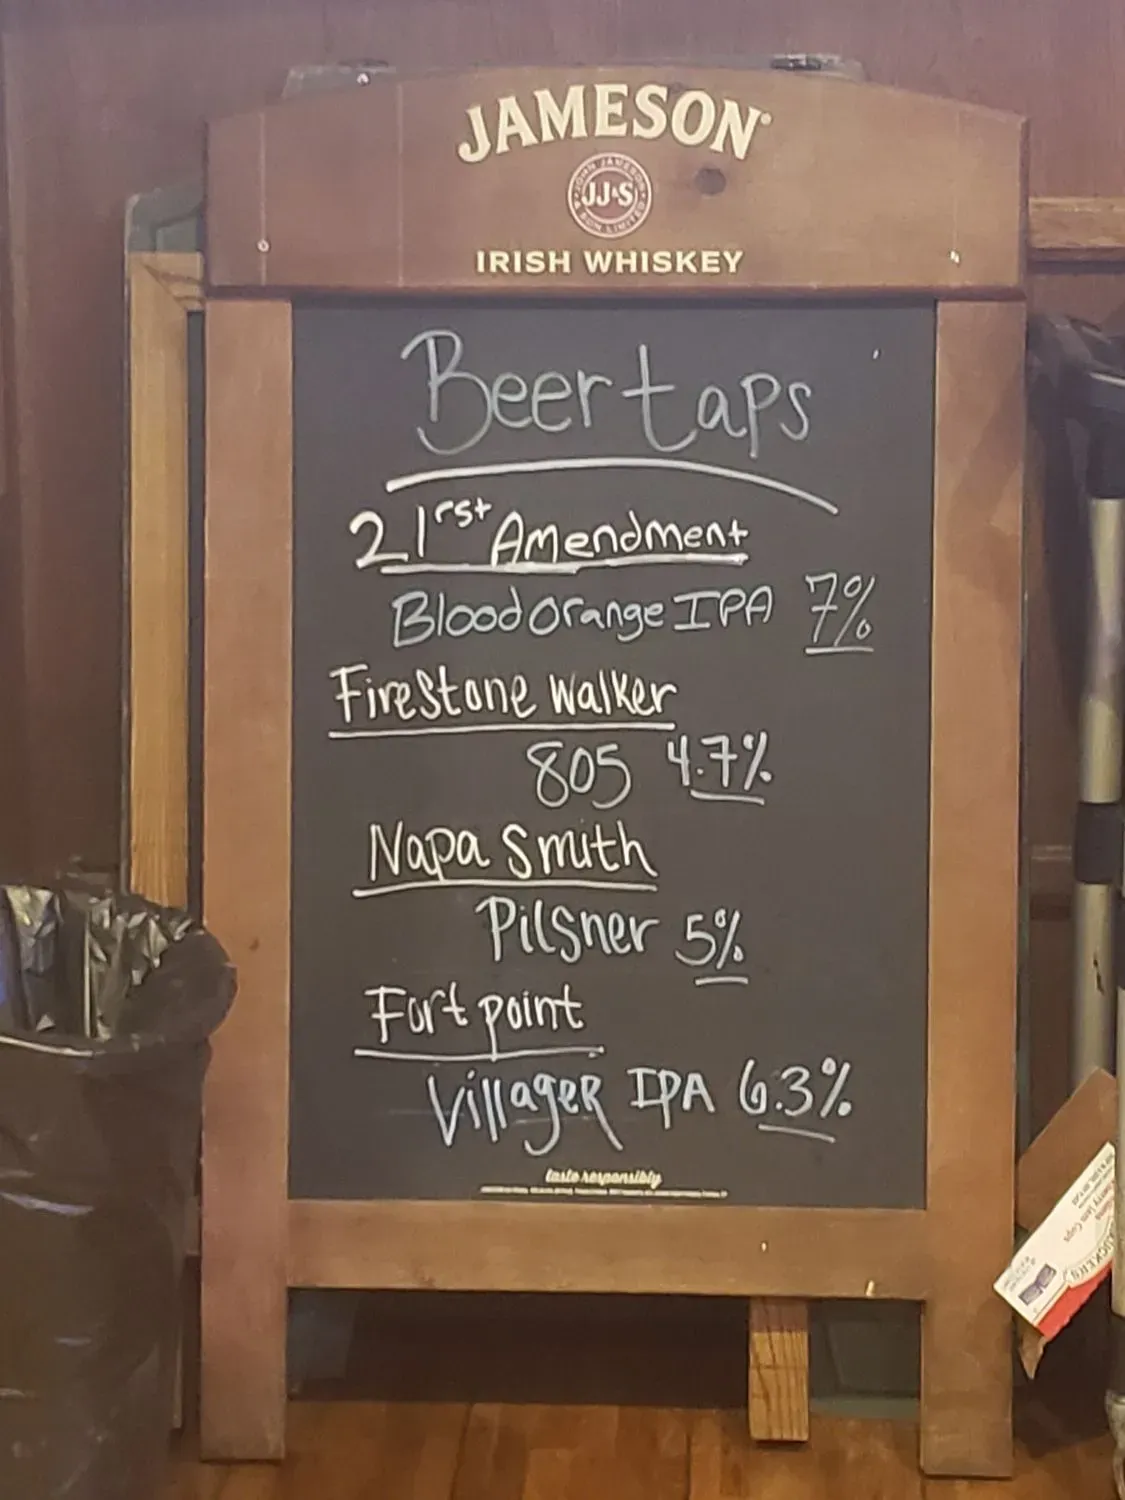 JAMESON®
JOHN JAMESON
JJ&S
& SON LIMITED
IRISH WHISKEY
Beer taps
21rst Amendment
Blood Orange IPA 7%
Firestone Walker
805 4.7%
Napa Smith
Pilsner 5%
Fort point
Villager IPA 6.3%
taste responsibly